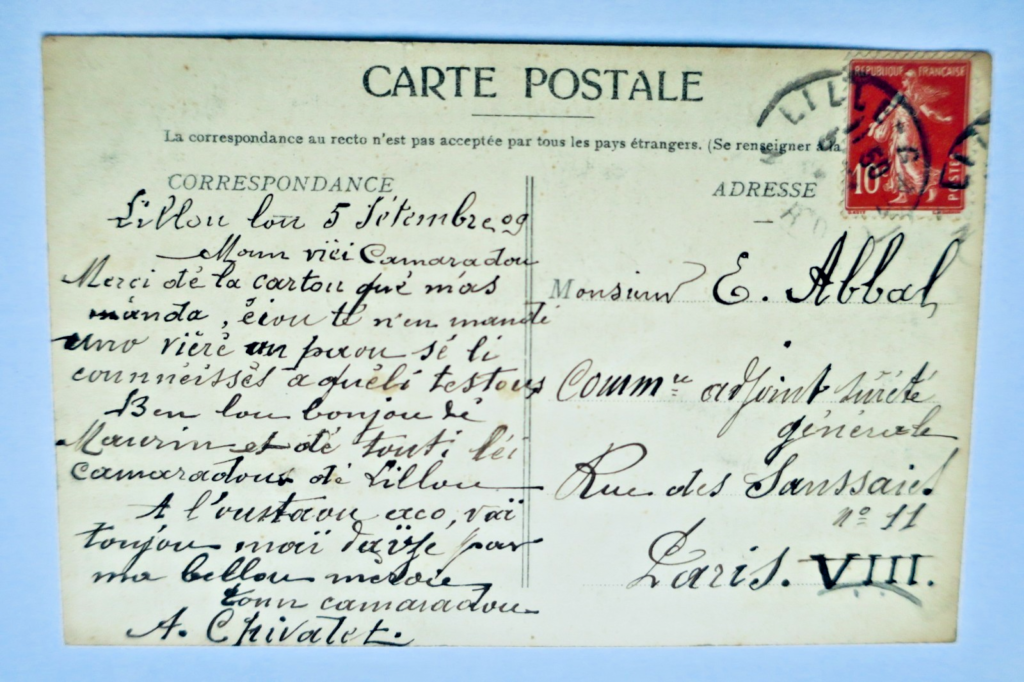 CARTE POSTALE
La correspondance au recto n'est pas acceptée par tous les pays étrangers. (Se renseigner à la
CORRESPONDANCE
ADRESSE
REPUBLIQUE FRANÇAISE
10
POSTES
LILLE
Lillou lou 5 Sétembre 09
Moun viei Camaradou
Merci dé la cartou qué m'as
manda, éiou té n'en mandé
uno viéré un paou sé li
counnéissés aquéli testous
Ben lou bonjou dé
Maurin et dé touti léi
camaradous dé Lillou
A l'oustaou aco, vaï
toujou maï
par
ma bellou mèrou
toun camaradou
A. Chivalet.
Monsieur E. Abbal
Commre adjoint sûreté
générale
Rue des Saussaies
no 11
Paris. VIII.